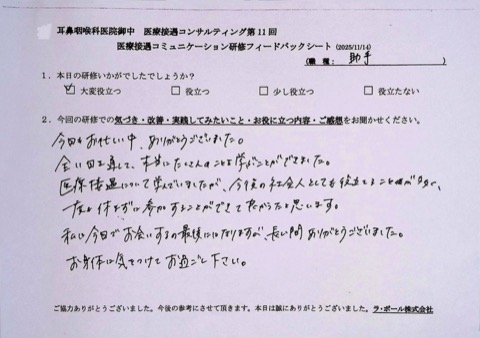 耳鼻咽喉科医院御中 医療接遇コンサルティング第11回
医療接遇コミュニケーション研修フィードバックシート (2025/11/14)
(職種: 助手 )
1.本日の研修いかがでしたでしょうか?
☑ 大変役立つ □ 役立つ □ 少し役立つ □ 役立たない
2.今回の研修での気づき・改善・実践してみたいこと・お役に立つ内容・ご感想をお聞かせください。
今回もお忙しい中、ありがとうございました。
全11回を通して、本当にたくさんのことを学ぶことができました。
医療接遇について学んでいましたが、今後の社会人としても役立つことが多く、
一度も休まずに参加することができてよかったなと思います。
私は今日でお会いするの最後にはなりますが、長い間ありがとうございました。
お身体に気をつけてお過ごし下さい。
ご協力ありがとうございました。今後の参考にさせて頂きます。本日は誠にありがとうございました。ラ・ポール株式会社